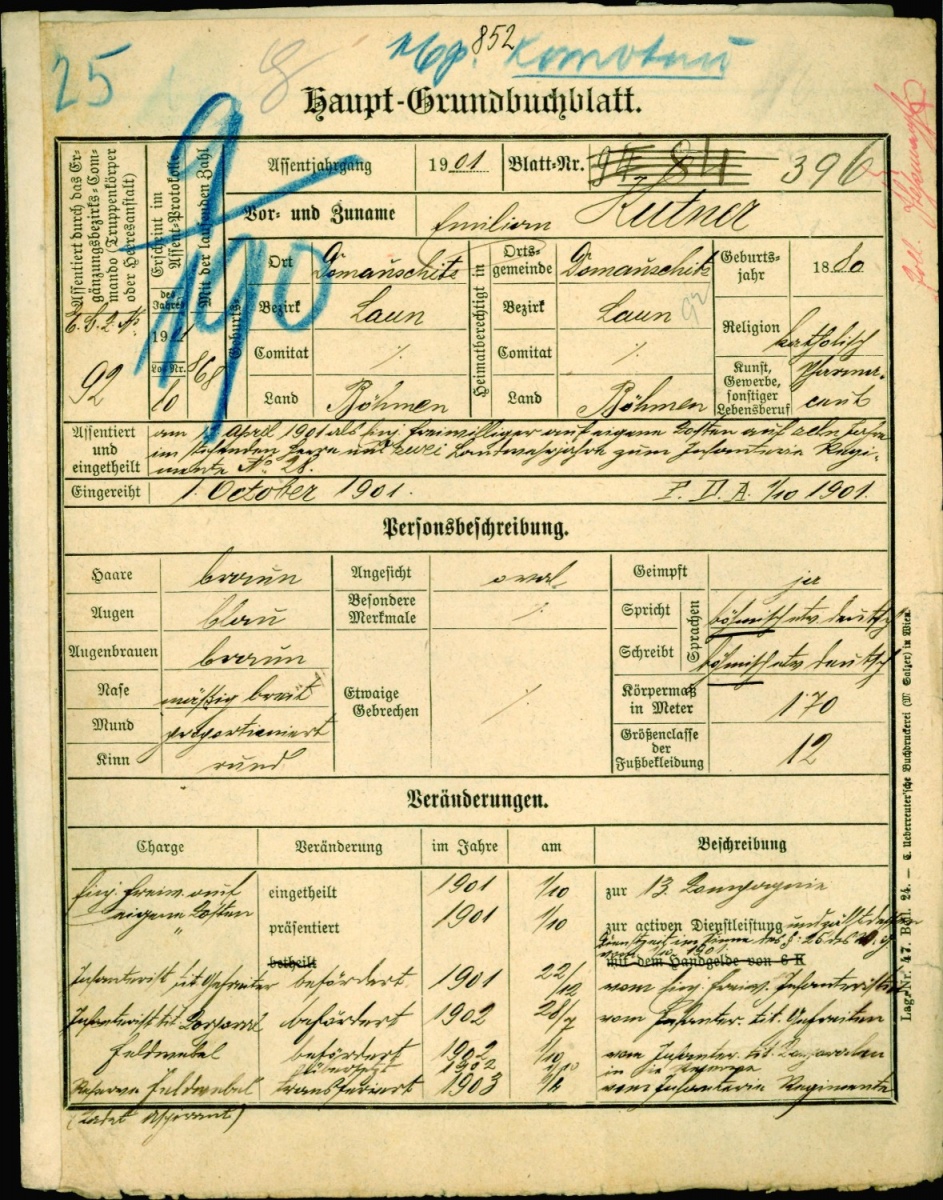 852
25 8 Komotau
Haupt-Grundbuchblatt.
Assentiert durch das Ergänzungsbezirks-Commando (Truppenkörper oder Heeresanstalt)
92
Erscheint im Assent-Protokolle
des Jahres
19
Los-Nr.
10
Mit der laufenden Zahl
868
190
Assentjahrgang 1901 Blatt-Nr. 396
Vor- und Zuname Emilian Kutner
Geburts-
Ort Domauschitz
Bezirk Laun
Comitat ./.
Land Böhmen
Heimatberechtigt in
Ortsgemeinde Domauschitz
Bezirk Laun
Comitat ./.
Land Böhmen
Geburtsjahr 1880
Religion katholisch
Kunst, Gewerbe, sonstiger Lebensberuf Pharmaceut
Assentiert und eingetheilt
am April 1901 als Einj. Freiwilliger auf eigene Kosten auf zehn Jahre
im stehenden Heere und zwei Landwehrjahre zum Infanterie Regi-
mente No 28.
Eingereiht 1. October 1901. P. D. A. 1/10 1901.
Personsbeschreibung.
Haare braun
Augen blau
Augenbrauen braun
Nase mässig breit
Mund proportioniert
Kinn rund
Angesicht oval
Besondere Merkmale ./.
Etwaige Gebrechen ./.
Geimpft ja
Sprachen
Spricht böhmisch etw. deutsch
Schreibt böhmisch etw. deutsch
Körpermaß in Meter 1·70
Größenclasse der Fußbekleidung 12
Veränderungen.
Charge Veränderung im Jahre am Beschreibung
Einj. Freiw. auf eigene Kosten eingetheilt 1901 1/10 zur 13. Compagnie
" präsentiert 1901 1/10 zur activen Dienstleistung und zählt dessen
Dienstzeit im Sinne des §: 25 des
betheilt mit dem Handgelde von 6 K
Infanterist tit Gefreiter befördert 1901 22/12 vom Einj. Freiw. Infanteristen
Infanterist tit Corporal befördert 1902 28/ vom Infanter. tit. Gefreiten
Feldwebel befördert 1902 1/10 vom Infanter. tit. Corporalen
übersetzt 1902 in die Reserve
Reserve Feldwebel transferiert 1903 vom Infanterie Regimente
(Cadet Aspirant)
Lag.-Nr. 47. Beil. 24. — C. Ueberreuter'sche Buchdruckerei (M. Salzer) in Wien.